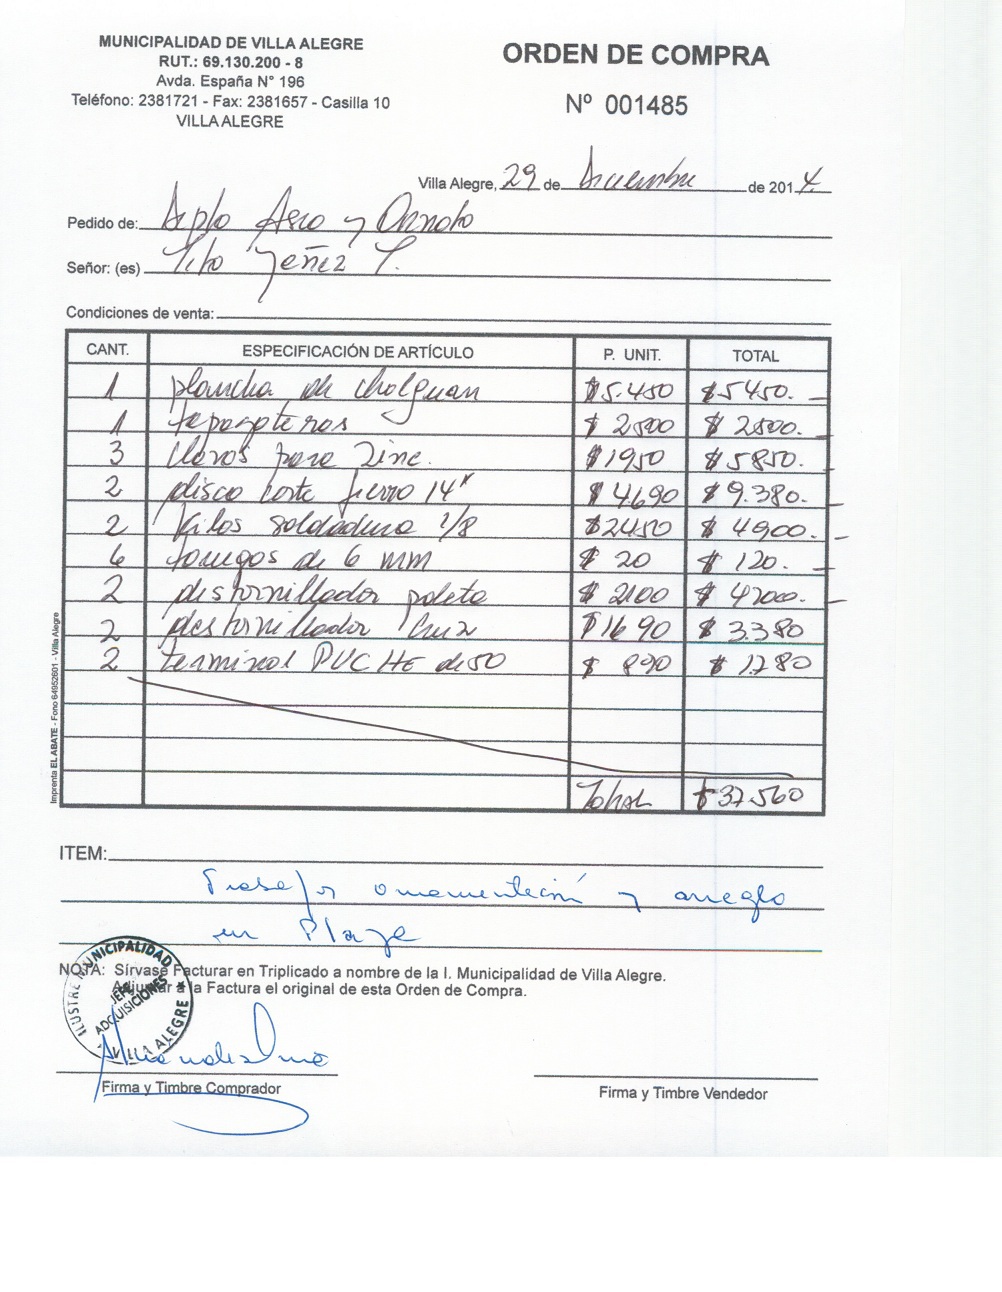 MUNICIPALIDAD DE VILLA ALEGRE
RUT.: 69.130.200 - 8
Avda. España N° 196
Teléfono: 2381721 - Fax: 2381657 - Casilla 10
VILLA ALEGRE
ORDEN DE COMPRA
Nº 001485
Villa Alegre, 29 de Diciembre de 2014
Pedido de: Dpto Aseo y Ornato
Señor: (es) Tito Yeñez T.
Condiciones de venta:
CANT. ESPECIFICACIÓN DE ARTÍCULO P. UNIT. TOTAL
1 plancha de cholguan $5.450 $5450.-
1 tapagoteras $ 2500 $ 2500.-
3 clavos para Zinc. $1950 $5850.-
2 disco corte fierro 14" $ 4.690 $9.380.-
2 kilos soldadura 1/8 $2450 $ 4900.-
6 tarugos de 6 mm $ 20 $ 120.-
2 destornillador paleta $ 2100 $ 4200.-
2 destornillador Cruz $1690 $ 3.380
2 terminal PVC HE de 50 $ 890 $ 1.780
Total $37.560
Imprenta EL ABATE - Fono 64952601 - Villa Alegre
ITEM:
ornamentación y arreglo
en Plaza
NOTA: Sírvase Facturar en Triplicado a nombre de la I. Municipalidad de Villa Alegre.
Adjuntar a la Factura el original de esta Orden de Compra.
ILUSTRE MUNICIPALIDAD
JEFE
ADQUISICIONES
* VILLA ALEGRE *
Firma y Timbre Comprador
Firma y Timbre Vendedor